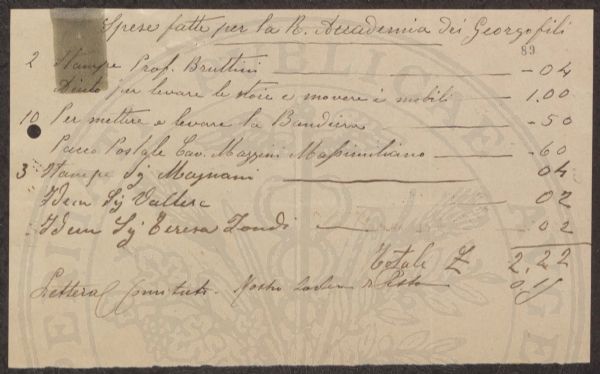 Spese fatte per la R. Accademia dei Georgofili
89
2 Stampe Prof. Bruttini - 04
Aiuto per levare le stoie e movere i mobili - 1.00
10 Per mettere e levare la Bandiera - 50
Pacco Postale Cav. Mazzini Massimiliano - 60
3 Stampe Sg Magnani 04
Idem Sg Valterc 02
Idem Sg Teresa 02
Totale £ 2,22
Lettera